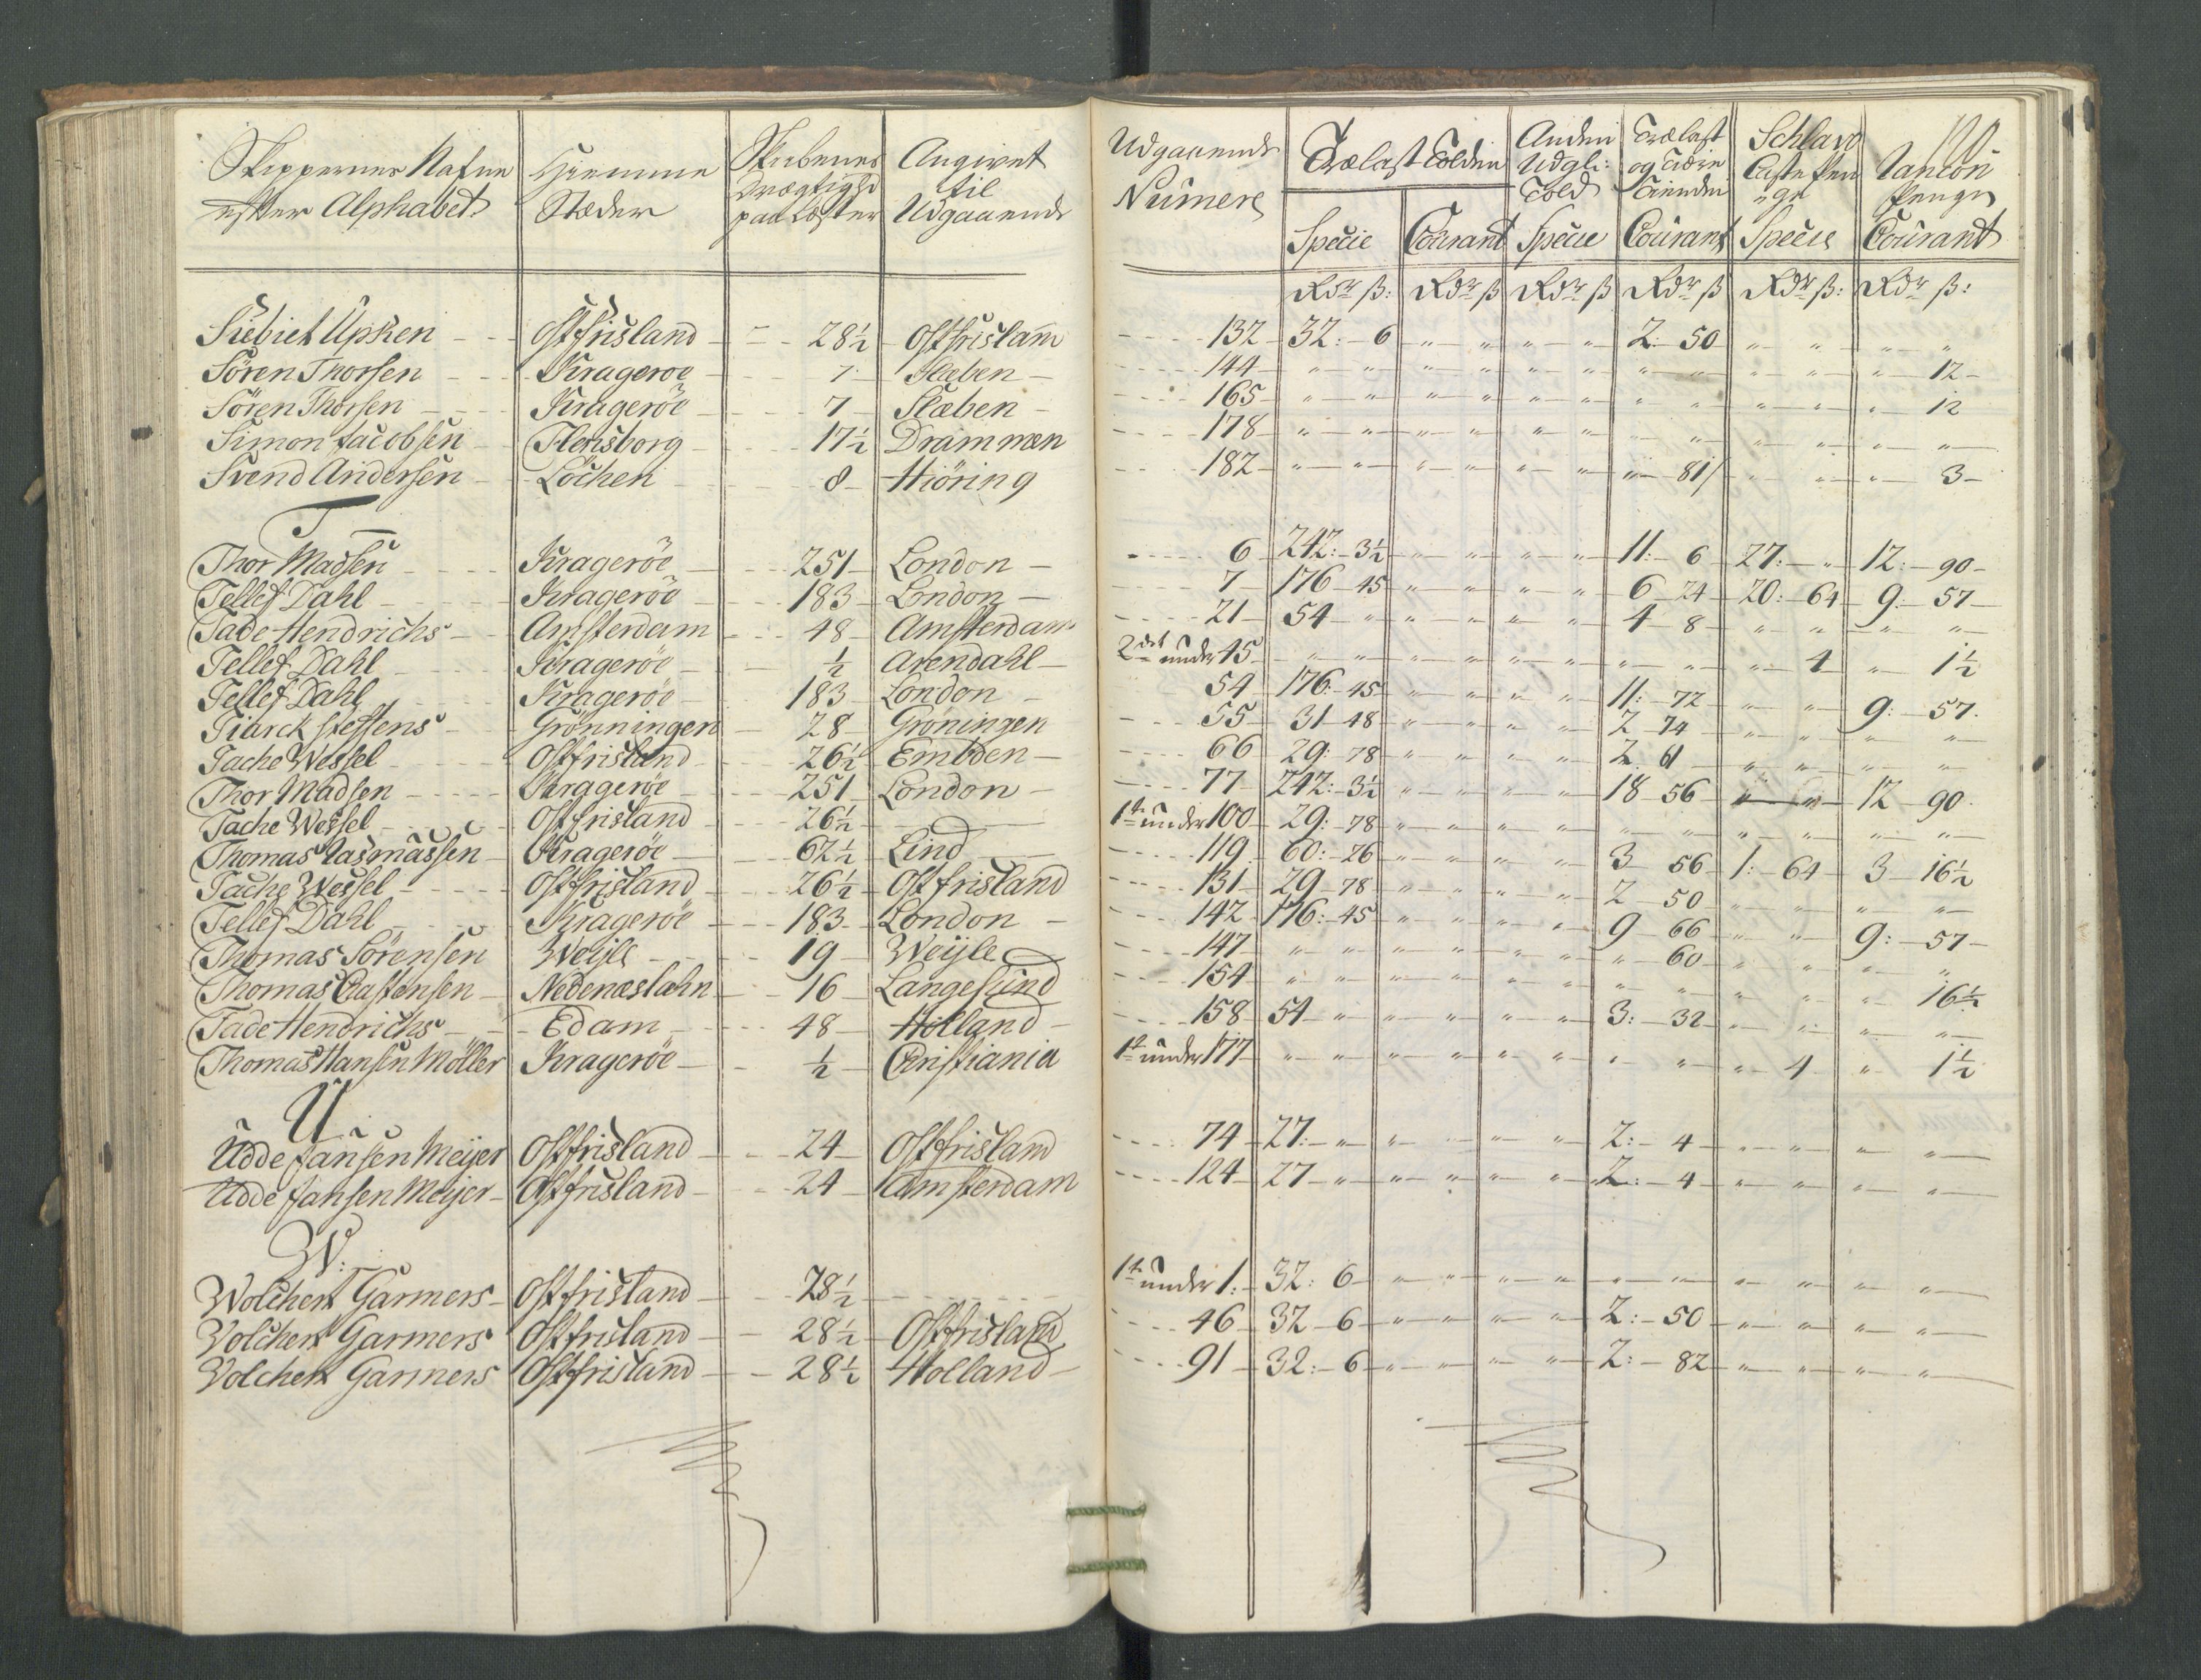 Skippernes Nafne efter Alphabet | Hiemme Stæder | Skibenes Drægtighd paa Læster | Angivet til Udgaaende | Udgaaende Numere | Trælast Tolden Specie | Courant | Anden Udgl: Told Specie | Trælast og Tiære Tienden Courant | Schlave Caste Penge Specie | Rancon Penge Courant
120
Rdr ß: | Rdr ß | Rdr ß | Rdr ß | Rdr ß: | Rdr ß:
Siebiet Upken | Ostfrisland | 28½ | Ostfrislann | 132 | 32: 6 | " " | " " | 2: 50 | " " | " "
Sören Thorsen | Krageroe | 7 | Staben | 144 | " " | " " | " " | " " | " " | " 12
Sören Thorsen | Krageröe | 7 | Stæben | 165 | " " | " " | " " | " " | " " | " 12
Simon Jacobsen | Flensborg | 17½ | Drammen | 178 | " " | " " | " " | " " | " " | " "
Svend Andersen | Löchen | 8 | Hiöring | 182 | " " | " " | " " | " 81 | " " | " 3
T
Thor Madsen | Krageröe | 251 | London | 6 | 242: 3½ | " " | " " | 11: 6 | 27: " | 12: 90
Tellef Dahl | Krageröe | 183 | London | 7 | 176 45 | " " | " " | 6 24 | 20: 64 | 9: 57
Tade Hendrichs | Amsterdam | 48 | Amsterdam | 21 | 54 " | " " | " " | 4 8 | " " | " "
Tellef Dahl | Krageröe | ½ | Arendahl | 2det under 45 | " " | " " | " " | " " | " 4 | " 1½
Tellef Dahl | Krageröe | 183 | London | 54 | 176: 45 | " " | " " | 11: 72 | " " | 9: 57.
Tiarck Steffens | Grönningen | 28 | Gröningen | 55 | 31 48 | " " | " " | 2 74 | " " | " "
Tache Wessel | Ostfrisland | 26½ | Embden | 66 | 29: 78 | " " | " " | 2 61 | " " | " "
Thor Madsen | Krageröe | 251 | London | 77 | 242: 3½ | " " | " " | 18 56 | " " | 12 90
Tache Wessel | Ostfrisland | 26½ | | 1te under 100 | 29: 78 | " " | " " | " " | " " | " "
Thomas Rasmussen | Krageröe | 62½ | Lind | 119 | 60: 26 | " " | " " | 3 56 | 1: 64 | 3 16½
Tache Wessel | Ostfrisland | 26½ | Ostfrisland | 131 | 29 78 | " " | " " | 2 50 | " " | " "
Tellef Dahl | Krageröe | 183 | London | 142 | 176: 45 | " " | " " | 9 66 | " " | 9: 57
Thomas Sörensen | Weijle | 19 | Weijle | 147 | " " | " " | " " | " 60 | " " | " "
Thomas Castensen | Nedenæslehn | 16 | Langesund | 154 | " " | " " | " " | " " | " " | " 16½
Tade Hendrichs | Edam | 48 | Holland | 158 | 54 " | " " | " " | 3: 32 | " " | " "
Thomas Hansen Möller | Krageröe | ½ | Christiania | 1te under 177 | " " | " " | " " | " " | " 4 | " 1½
U
Udde Jansen Meijer | Ostfrisland | 24 | Ostfrisland | 74 | 27: " | " " | " " | 2: 4 | " " | " "
Udde Jansen Meijer | Ostfrisland | 24 | Amsterdam | 124 | 27 " | " " | " " | 2: 4 | " " | " "
W:
Wolchert Garmers | Ostfrisland | 28½ | | 1te under 1: | 32: 6 | " " | " " | " " | " " | " "
Volchert Garmers | Ostfrisland | 28½ | Ostfrisland | 46 | 32 6 | " " | " " | 2: 50 | " " | " "
Volchert Garmers | Ostfrisland | 28½ | Holland | 91 | 32: 6 | " " | " " | 2: 82 | " " | " "